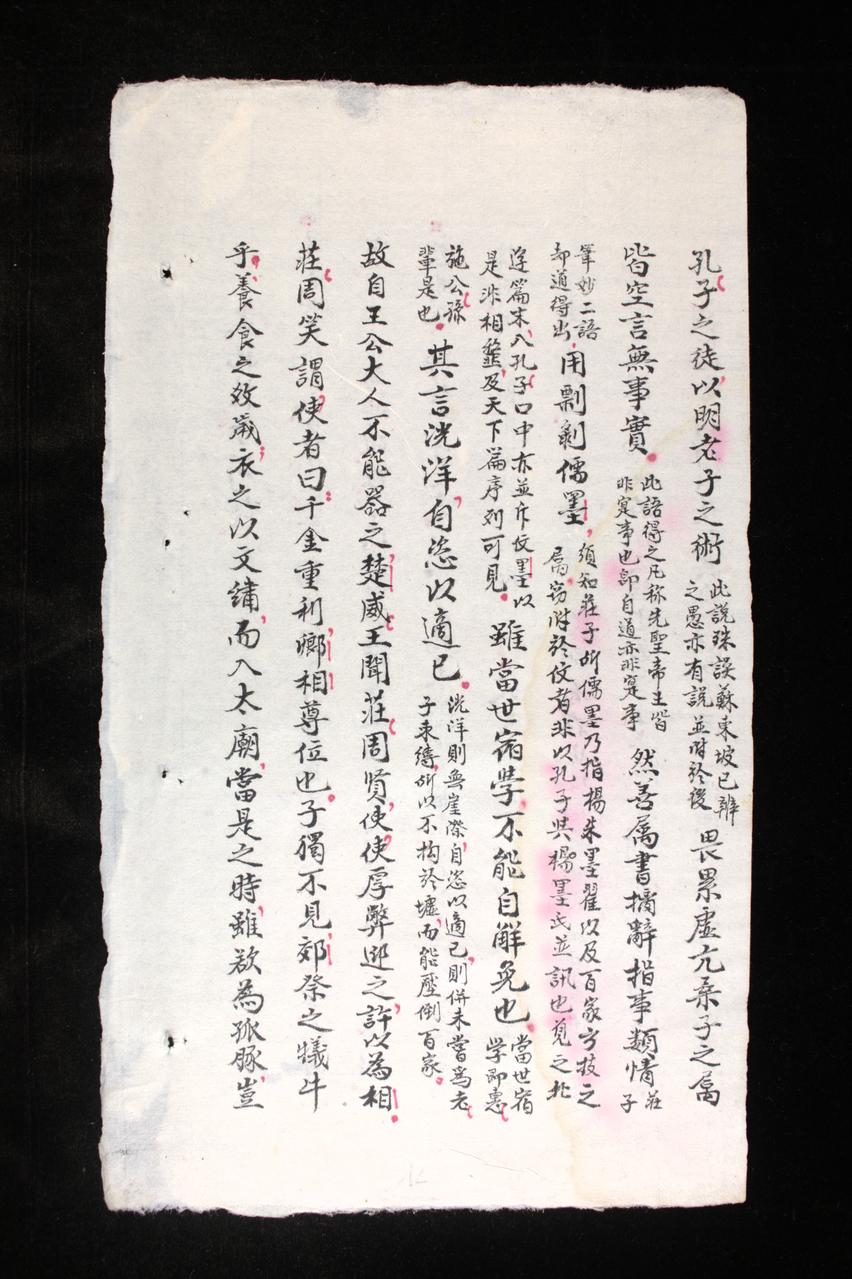 孔子之徒以明老子之術此說殊誤蘇東坡已辨之愚亦有説並附於後畏累虛亢桑子之屬
皆空言無事實此語得之凡称先聖帝王皆非寔事也即自道亦非寔事然善属書摛辭指事類情莊子
筆妙二語却道得出用剽剝儒墨須知莊子所儒墨乃指楊朱墨翟以及百家方技之屬窃附於伩者非以孔子與楊墨氏並訊也覌之北
遊篇末入孔子口中亦並斥伩墨以是非相韲及天下篇序列可見雖當世宿學不能自解免也當世宿學即惠
施公孫輩是也其言洸洋自恣以適己洸洋則無崖際自恣以適己則併未嘗爲老子束縛所以不拘於墟而能壓倒百家
故自王公大人不能器之楚威王聞莊周賢使使厚弊迎之許以為相
莊周笑謂使者曰千金重利卿相尊位也子獨不見郊祭之犧牛
乎養食之效歲衣之以文繡而入太廟當是之時雖欲為孤豚豈